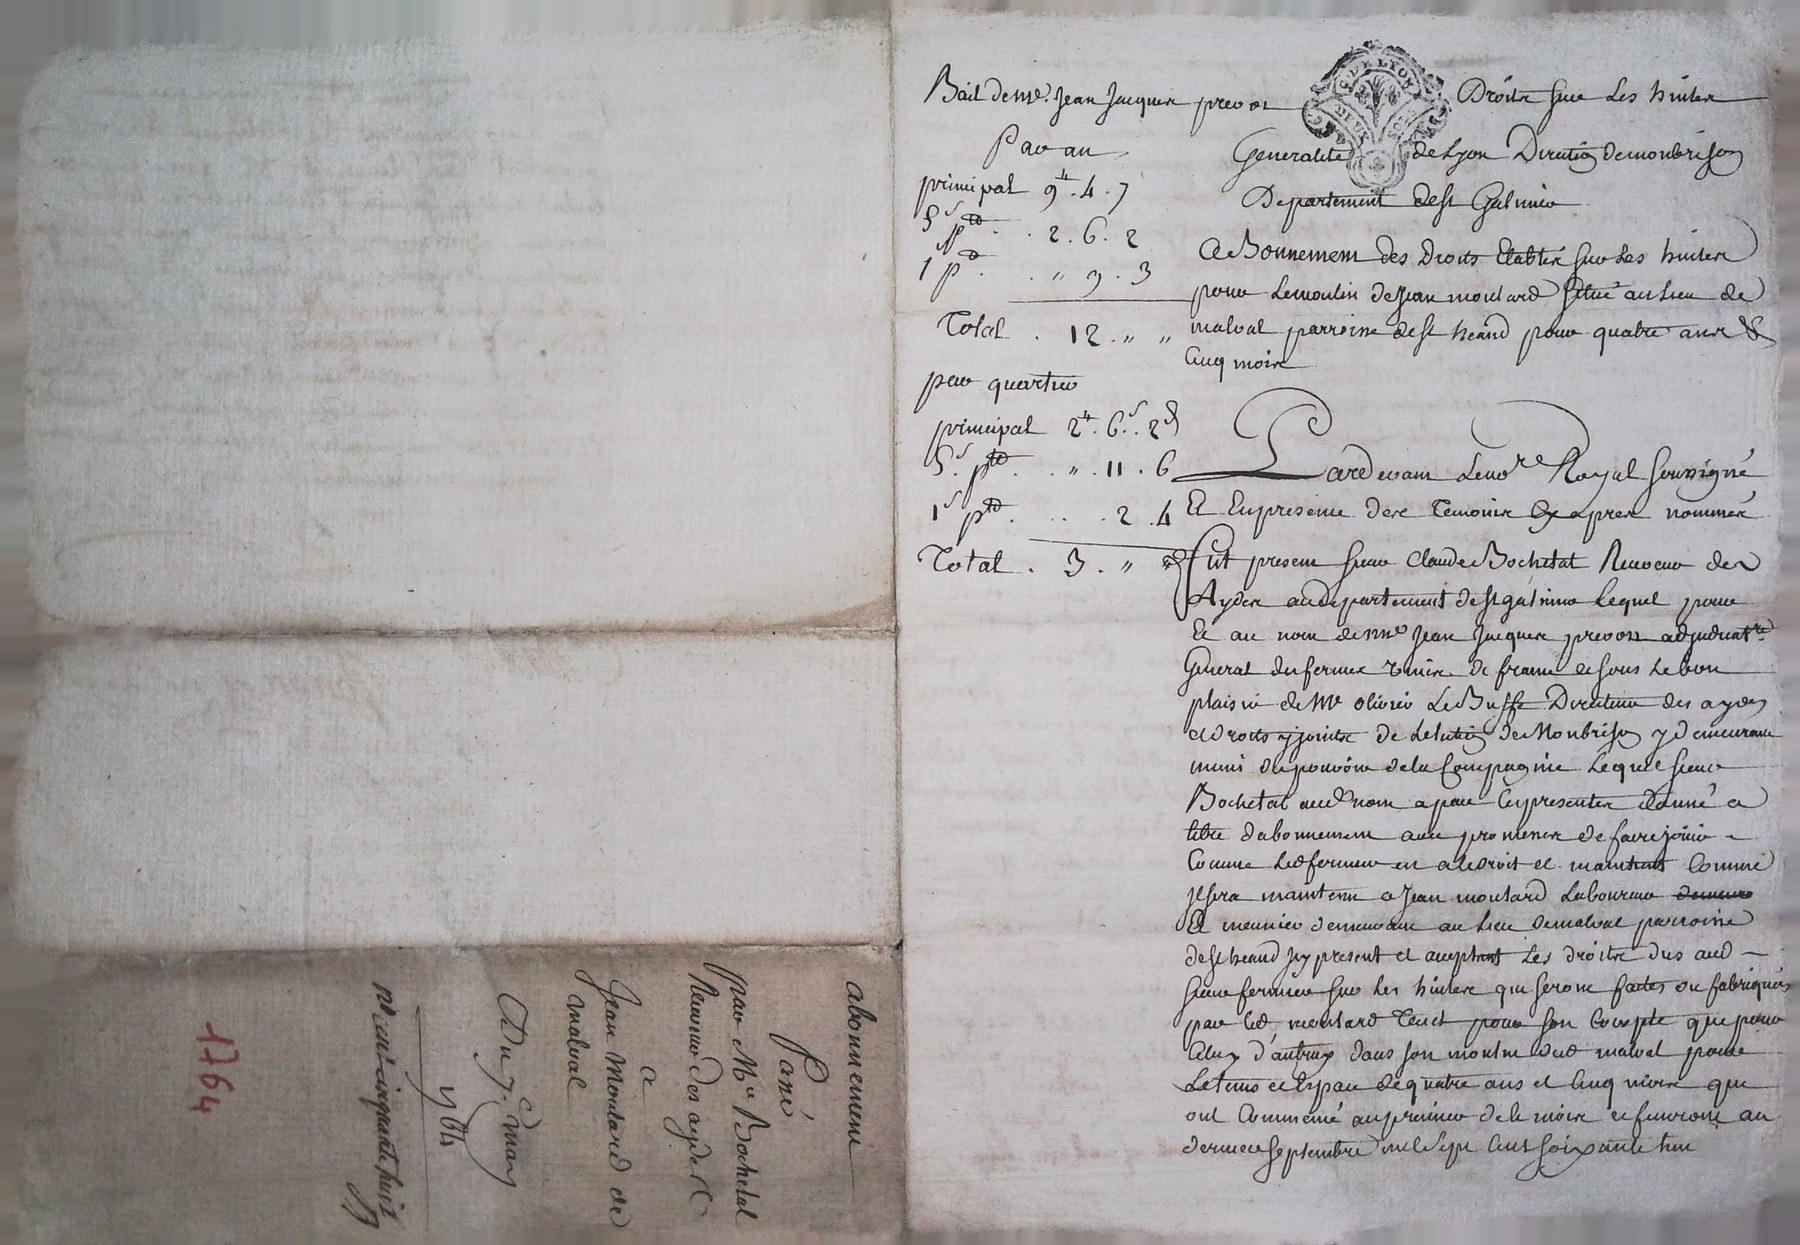 Bail de me. Jean Jacques prevost
Droits sur les huiles
Generalité de Lyon Direction de monbrison
Departement de st Galmier
Par an
principal 9 . 4 . 7
5 s pr # . . 2 . 6 . 2
1 s pr # . . " 9 . 3
Total . 12 . " "
par quartier
principal 2 . 6 s . 2 d
5 s. pr # . . " . 11 . 6
1 s pr # . . . 2 . 4
Total . 3 . " "
Abonnement des Droits Etablis sur Les huiles
pour Le moulin de Jean moulard situé au Lieu de
malval parroisse de st heand pour quatre ans &
Cinq mois
Pardevant Le nore Royal soussigné
Et En presence des Temoins Cy apres nommés
fut present sieur Claude Bochetal Receveur des
Aydes au departement de st galmier Lequel pour
Et au nom de me Jean Jacques prevost adjudicatre
General des fermes unies de france et sous Le bon
plaisir de Mr olivier Le Buffe Directeur des aydes
et droits y joints de Lelection de Monbrison y demeurant
muni du pouvoir de la Compagnie Lequel sieur
Bochetal aud nom a par Ces presentes donné a
titre dabonnement avec promesse de faire jouir
Comme Led fermier en a le droit et maintenu Comme
Il sera maintenu a Jean moulard Laboureur demeur
Et meunier demeurant au Lieu de malval parroisse
de st heand Icy present et acceptant Les droits dus aud
sieur fermier sur Les huiles qui seront faites ou fabriqués
par Led moulard Tant pour son Compte que pour
Celuy d'autruy dans son moulin dud malval pour
Le tems et Espace de quatre ans et Cinq mois que
ont Commencé au premier de Ce mois et finiront au
dernier septembre mil Sept Cent soixante huit
abonnement
Passé
par Mr Bochetal
Receveur des aydes
a
Jean Moulard de
malval
Du 7 E may
1764
no cent cinquante huit
1764